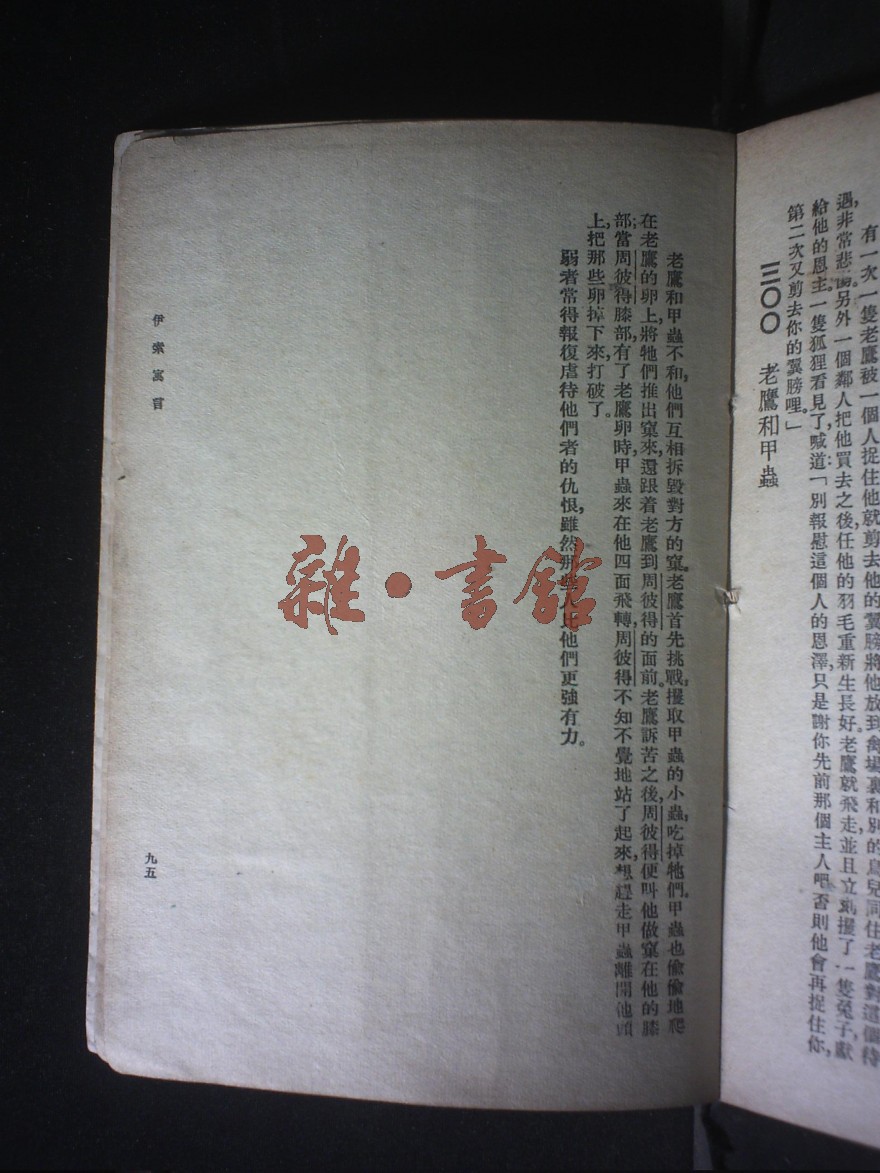 有一次一隻老鷹被一個人捉住他就剪去他的翼膀將他放到禽場裏和別的鳥兒同住老鷹對這個待
遇，非常悲傷。另外一個鄰人把他買去之後，任他的羽毛重新生長好。老鷹就飛走，並且立刻攫了一隻兔子，獻
給他的恩主。一隻狐狸看見了，喊道：「別報慰這個人的恩澤，只是謝你先前那個主人吧，否則他會再捉住你，
第二次又剪去你的翼膀哩。」
三〇〇 老鷹和甲蟲
老鷹和甲蟲不和，他們互相拆毀對方的窠。老鷹首先挑戰，攫取甲蟲的小蟲，吃掉牠們。甲蟲也偷偷地爬
在老鷹的卵上，將牠們推出窠來，還跟着老鷹到周彼得的面前。老鷹訴苦之後，周彼得便叫他做窠在他的膝
部；當周彼得膝部，有了老鷹卵時，甲蟲來在他四面飛轉，周彼得不知不覺地站了起來，想趕走甲蟲離開他頭
上，把那些卵掉下來，打破了。
弱者常得報復虐待他們者的仇恨，雖然那些人比他們更強有力。
伊索寓言
九五
雜·書館